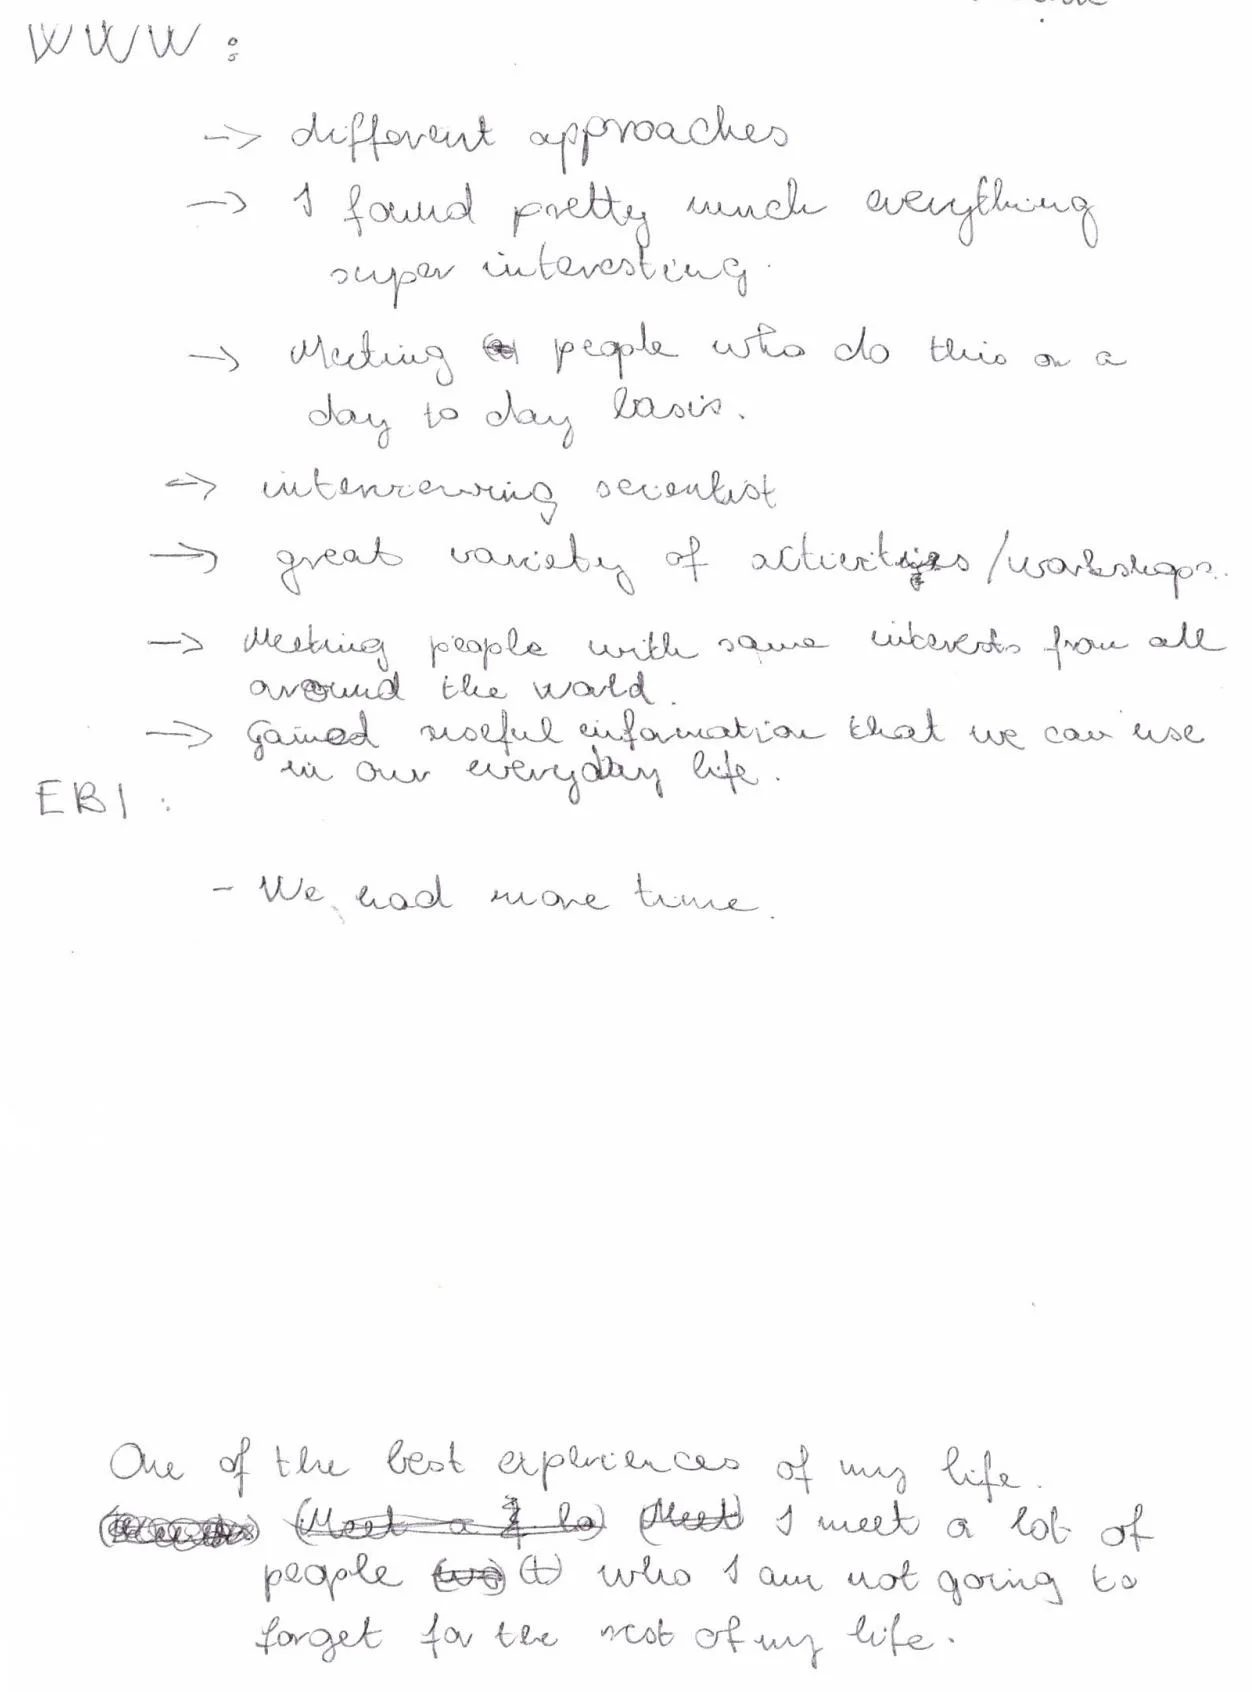 WWW :
-> different approaches
-> I found pretty much everything
super interesting.
-> Meeting people who do this on a
day to day basis.
-> interviewing scientist
-> great variety of activities / workshops.
-> Meeting people with same interests from all
around the world.
-> Gained useful information that we can use
in our everyday life.
EBI :
- We had more time.
One of the best experiences of my life.
I meet a lot of
people who I am not going to
forget for the rest of my life.